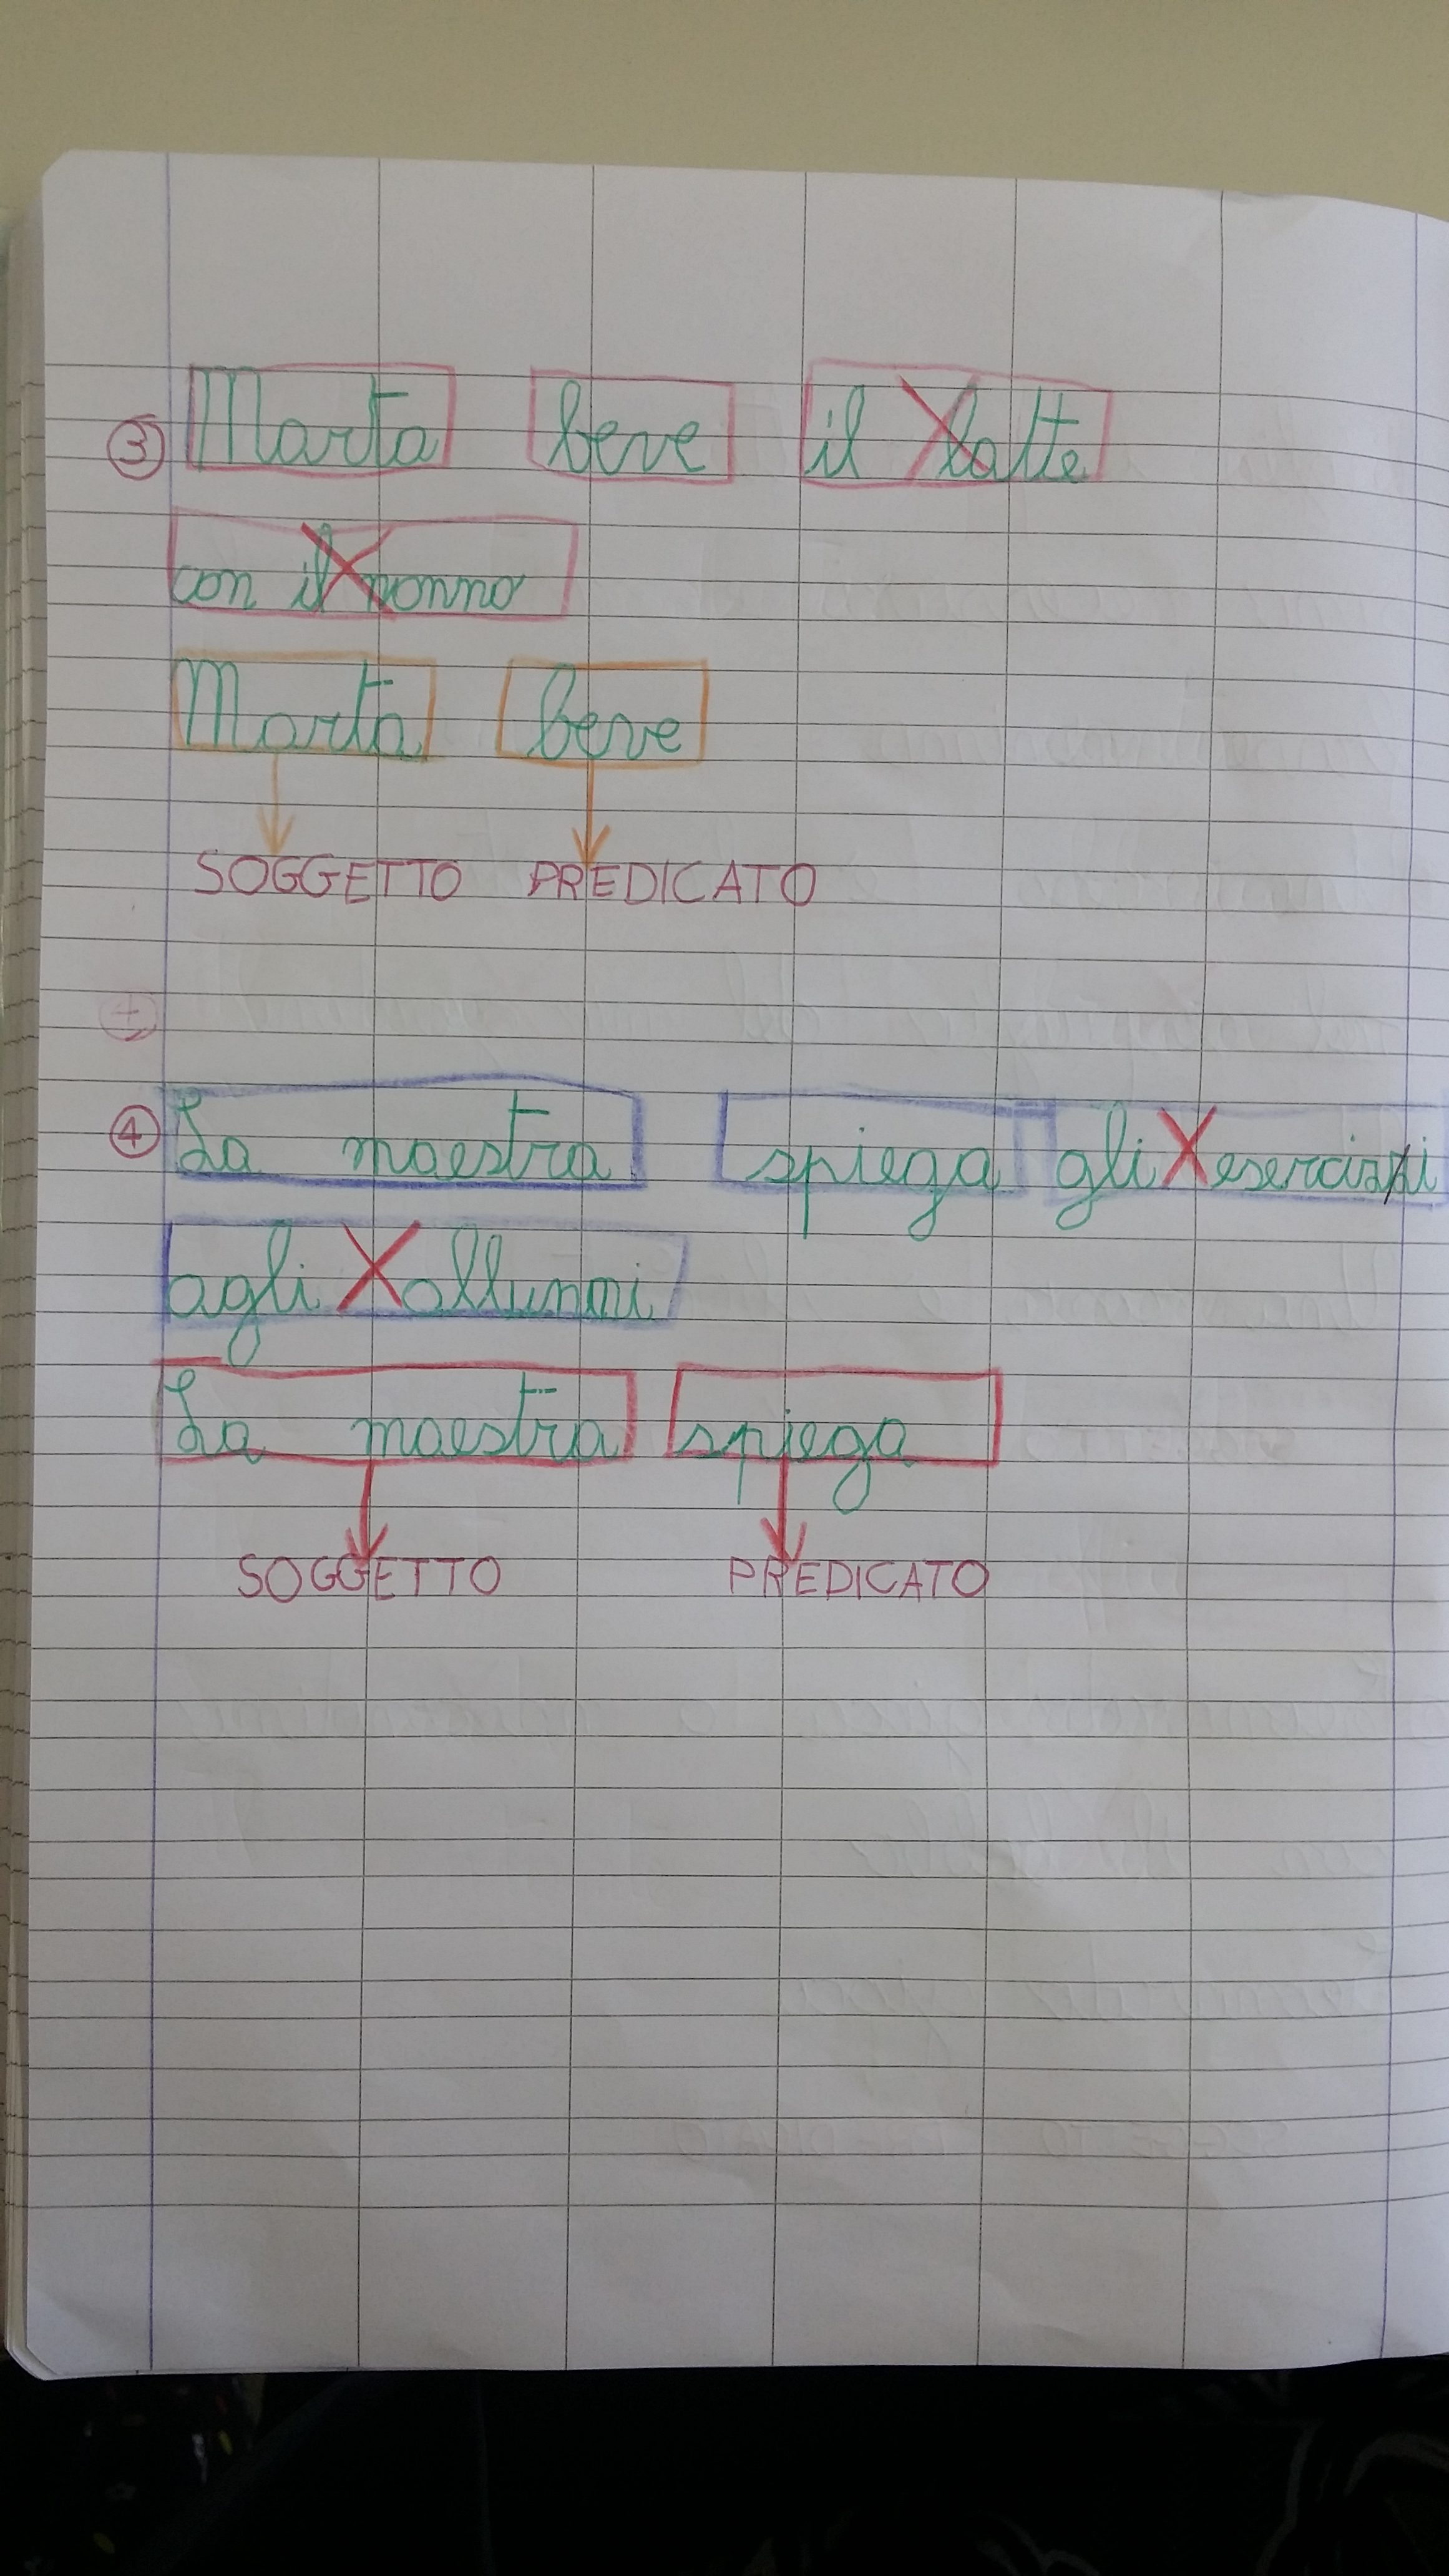 3 Marta beve il latte
con il nonno
Marta beve
SOGGETTO PREDICATO
4 La maestra spiega gli esercizi
agli allunni
La maestra spiega
SOGGETTO PREDICATO